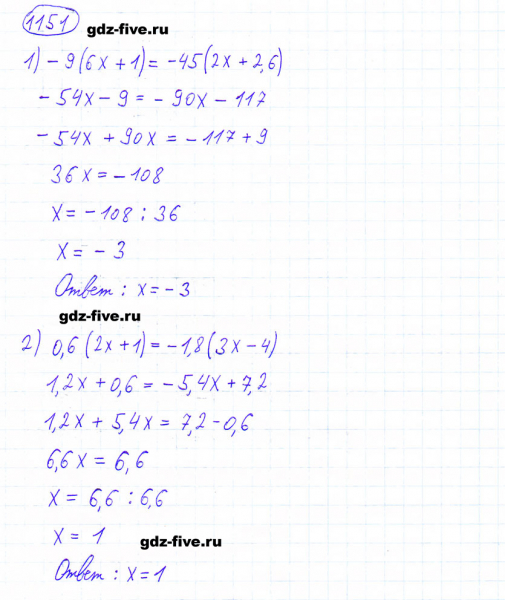 1151
gdz-five.ru
1) - 9(6x + 1) = -45(2x + 2,6)
- 54x - 9 = - 90x - 117
- 54x + 90x = - 117 + 9
36x = - 108
x = - 108 : 36
x = - 3
Ответ : x = - 3
gdz-five.ru
2) 0,6 (2x + 1) = -1,8(3x - 4)
1,2x + 0,6 = - 5,4x + 7,2
1,2x + 5,4x = 7,2 - 0,6
6,6x = 6,6
x = 6,6 : 6,6
x = 1
gdz-five.ru
Ответ : x = 1